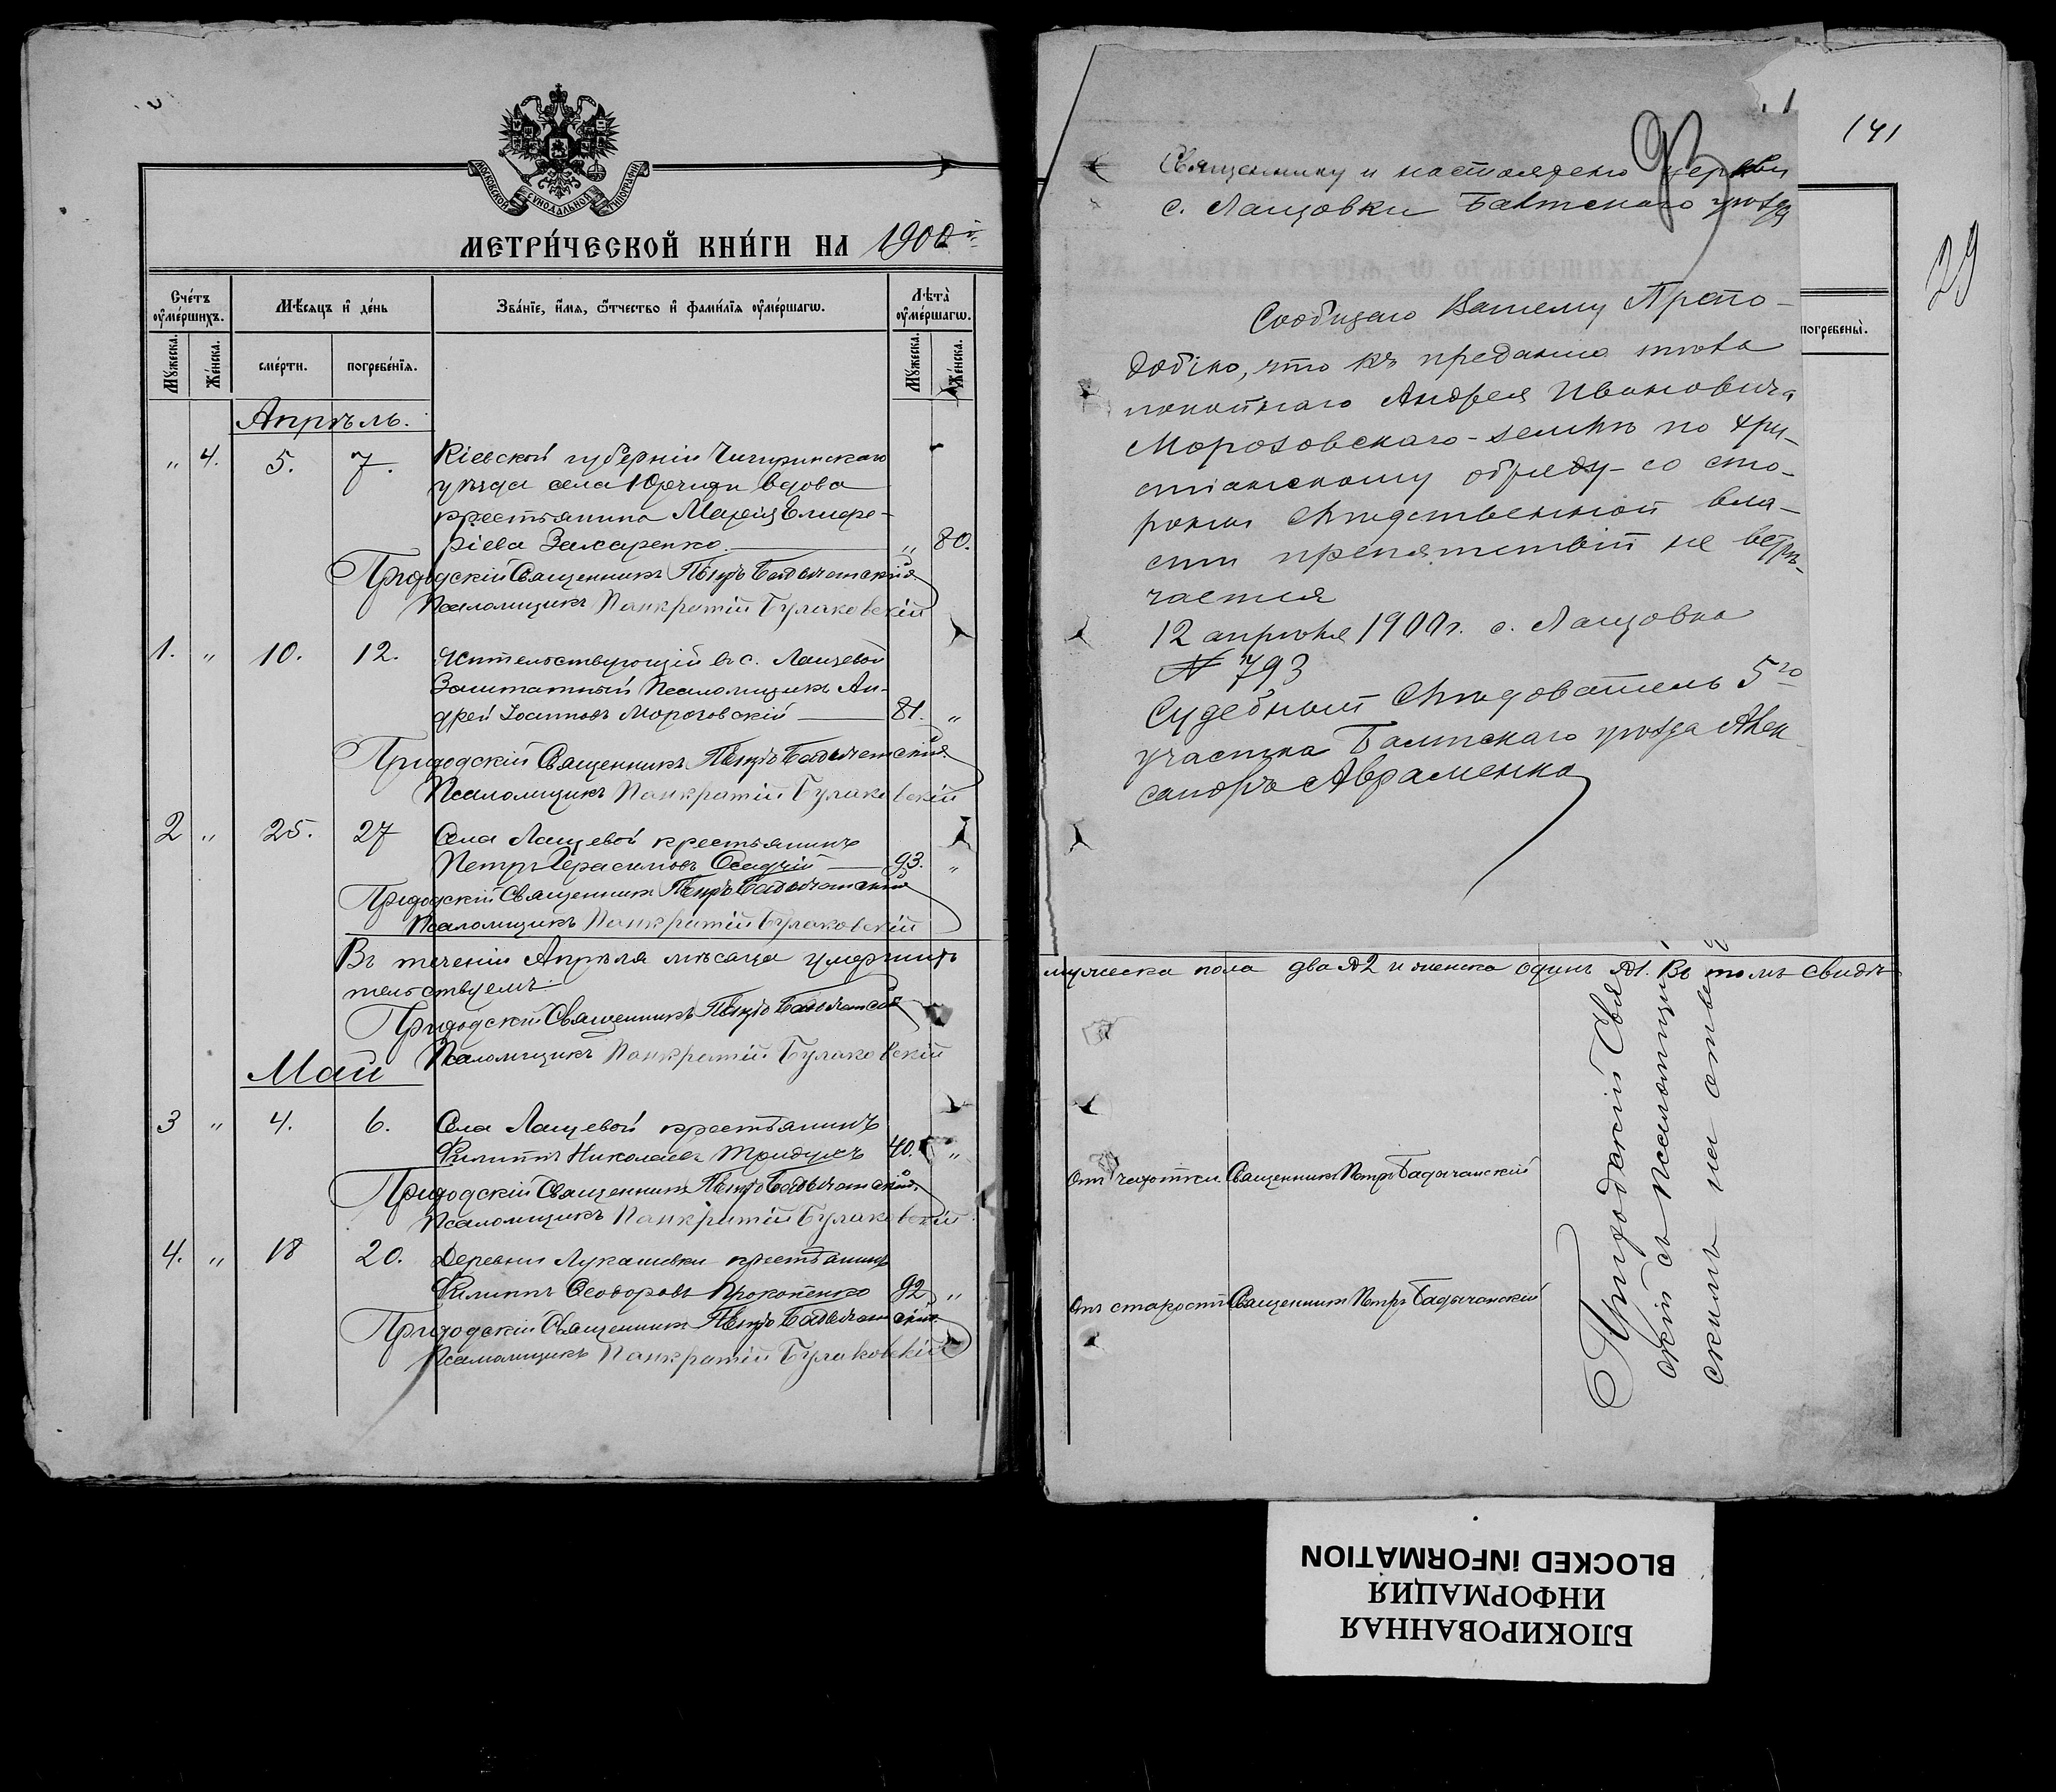 МОСКОВСКОЙ СѴНОДАЛЬНОЙ ТИПОГРАФІИ
МЕТРИ́ЧЕСКОЙ КНИ́ГИ НА 1900й
Сче́тъ оумéршихъ.
Мѣ́сяцъ и҆ де́нь
Зва́нїе, и҆́мя, ѻ҆́тчество и҆ фами́лїя оумéршагѡ.
Лѣта̀ оумéршагѡ.
Мꙋ́жеска.
Же́нска.
сме́рти.
погребе́нїя.
Мꙋ́жеска.
Же́нска.
Апрѣль.
„ 4. 5. 7. Кіевской губерніи Чигиринскаго
уѣзда села Юрчихи вдова
крестьянина Марія Елиѳе-
ріева Захаренко „ 80.
Приходскій Священникъ Петръ Бадычанскій
Псаломщикъ Панкратій Булаковскій
1. „ 10. 12. Жительствующій въ с. Лащевой
Заштатный Псаломщикъ Ан-
дрей Іоанновъ Морозовскій 81. „
Приходскій Священникъ Петръ Бадычанскій
Псаломщикъ Панкратій Булаковскій
2 „ 25. 27 Села Лащевой крестьянинъ
Петръ Герасимовъ Осадчій 93. „
Приходскій Священникъ Петръ Бадычанскій
Псаломщикъ Панкратій Булаковскій
Въ теченіи Апрѣля мѣсяца умершихъ
тельствуемъ.
Приходскій Священникъ Петръ Бадычанскій
Псаломщикъ Панкратій Булаковскій
Май
3 „ 4. 6. Села Лащевой крестьянинъ
Филиппъ Николаевъ 40. „
Приходскій Священникъ Петръ Бадычанскій
Псаломщикъ Панкратій Булаковскій
4. „ 18 20. Деревни Лукашевки крестьянинъ
Филиппъ Ѳеодоровъ Прокопенко 92 „
Приходскій Священникъ Петръ Бадычанскій
Псаломщикъ Панкратій Булаковскій
141
29
Священнику и настоятелю церкви
с. Лащовки Балтскаго уѣзда
Сообщаю Вашему Препо-
добію, что къ преданію тѣла
покойнаго Андрея Ивановича
Морозовскаго - землѣ по хри-
стіанскому обряду - со сто-
роны слѣдственной вла-
сти препятствій не встрѣ-
чается
12 апрѣля 1900 г. с. Лащовка
№ 793
Судебный Слѣдователь 5го
участка Балтскаго уѣзда Алек-
сандръ Авраменко
погребены̀.
мужеска пола два №2 и женска одинъ №1. Въ томъ свидѣ-
Отъ чахотки Священникъ Петръ Бадычанскій
Отъ старости Священникъ Петръ Бадычанскій
Приходскій Свя
скій съ Псаломщик
скимъ на
БЛОКИРОВАННАЯ
ИНФОРМАЦИЯ
BLOCKED INFORMATION